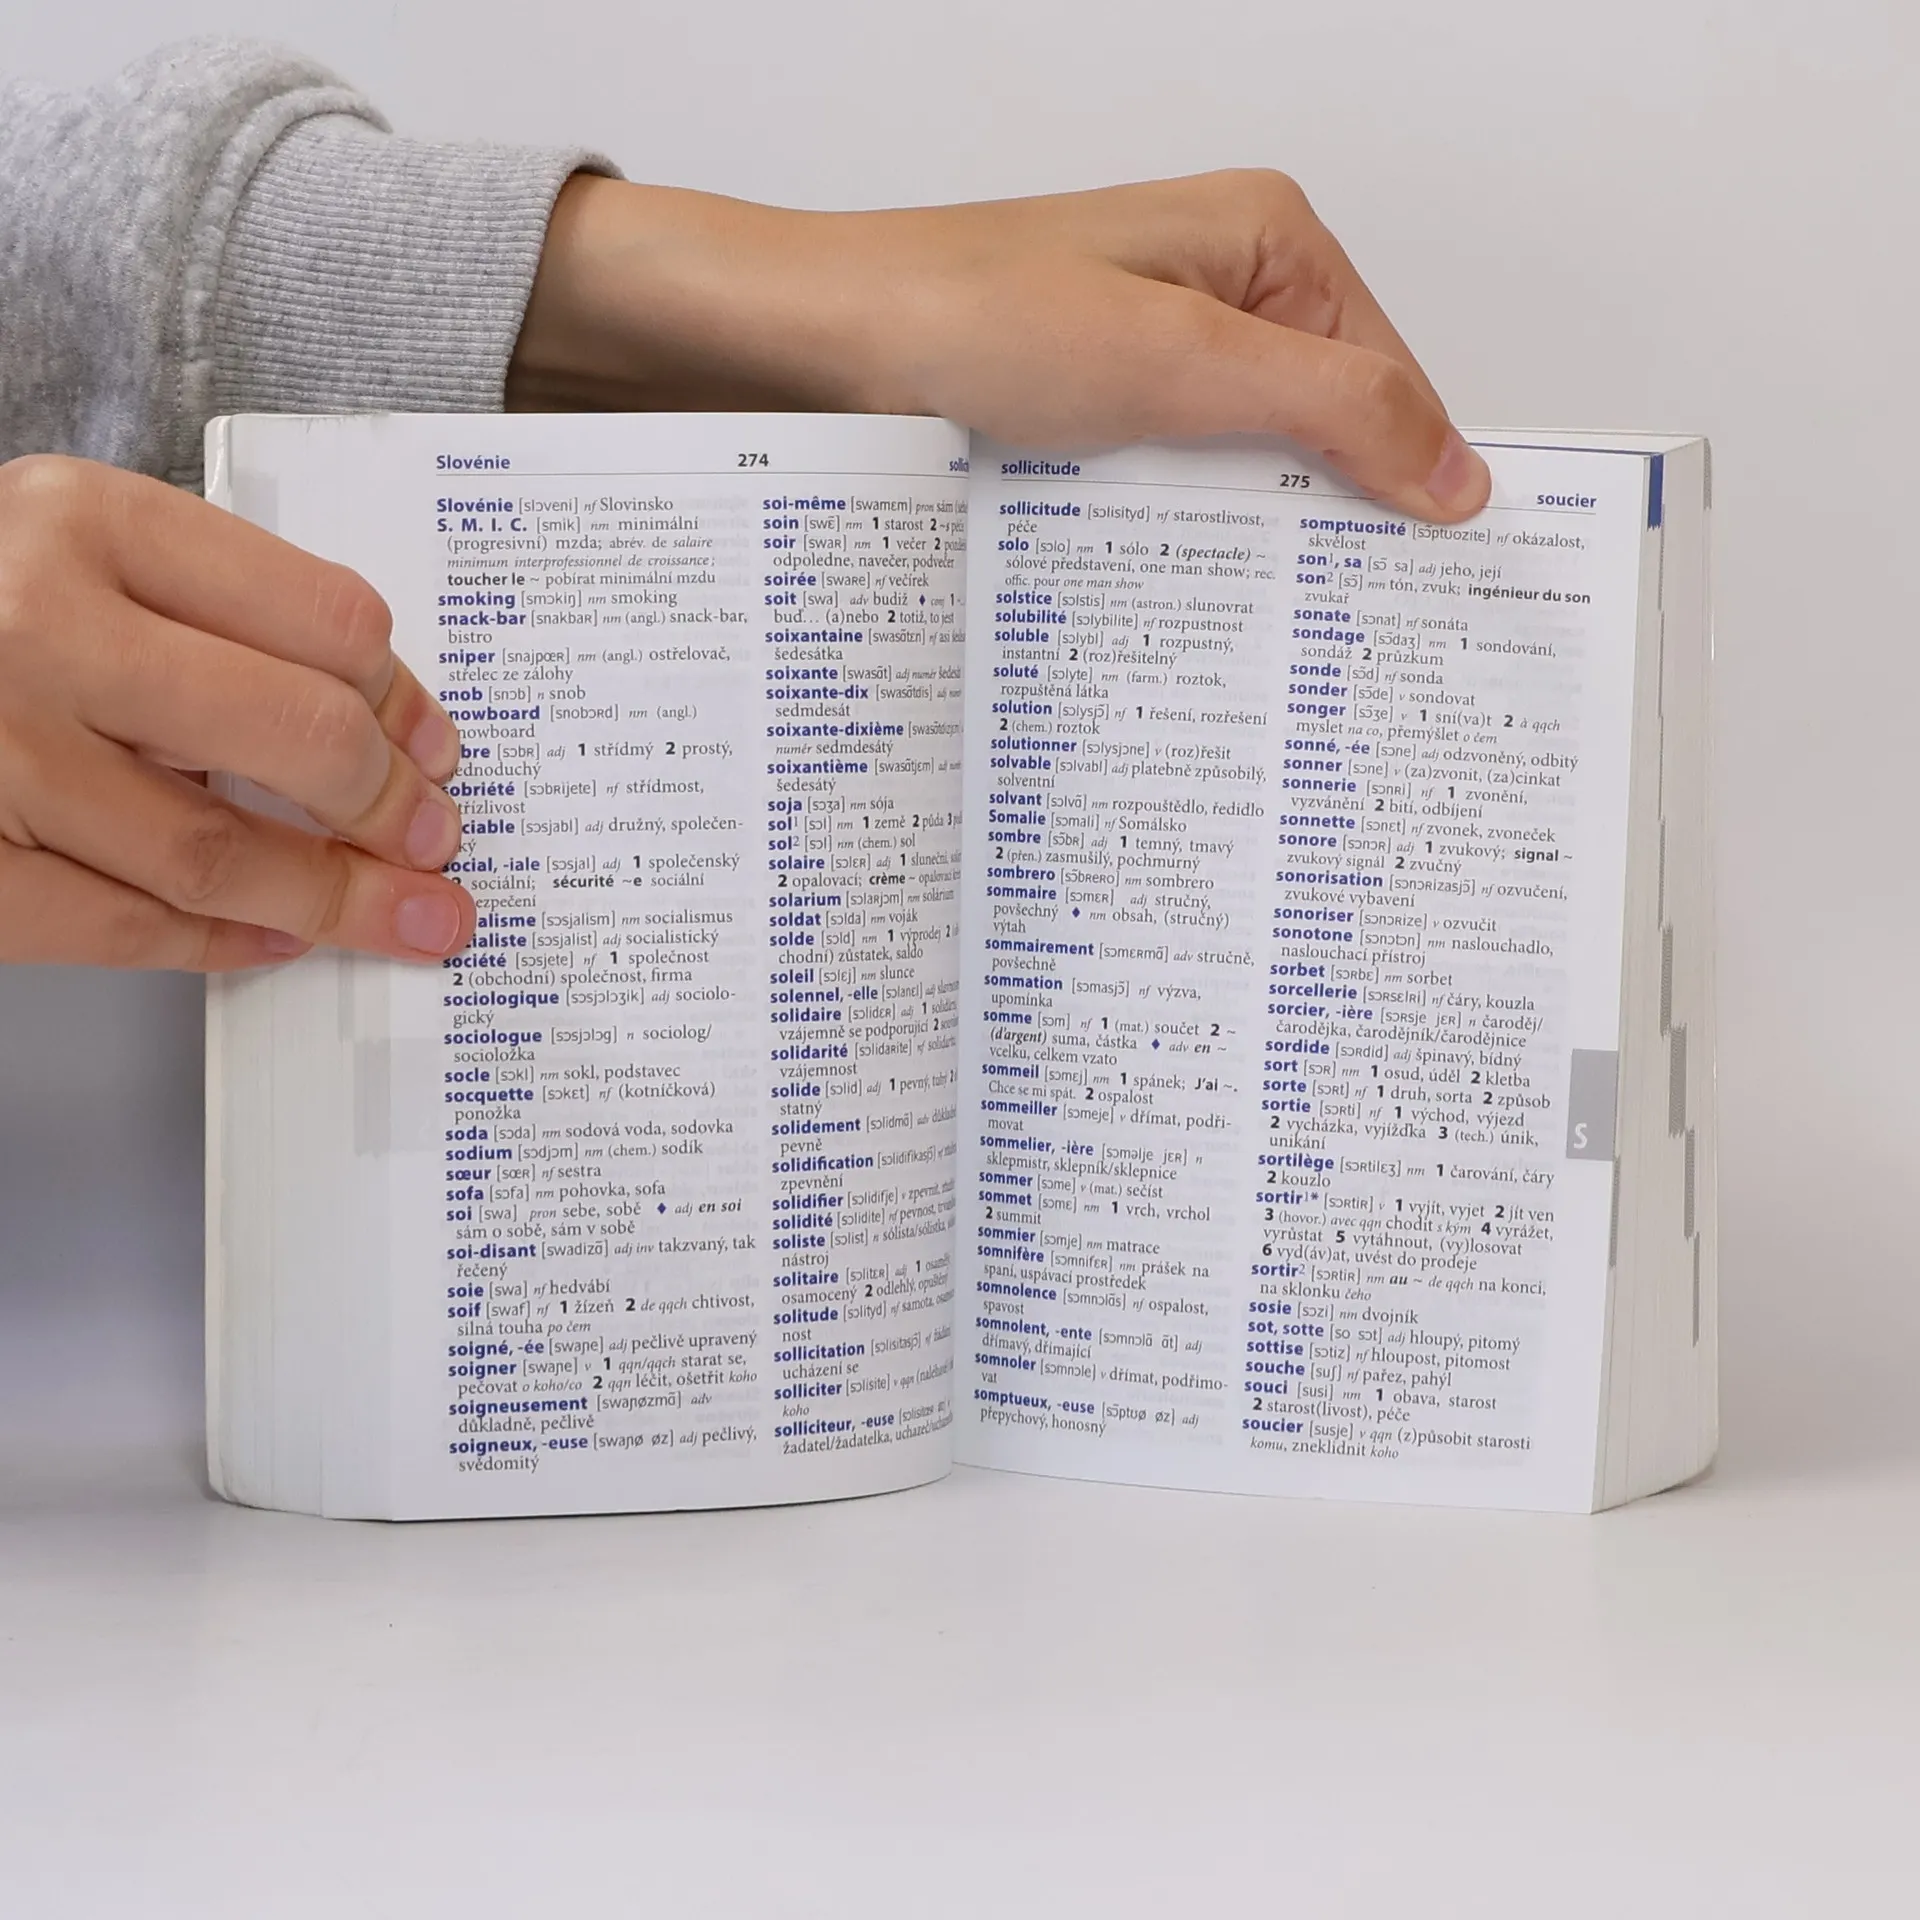 Slovénie
274
Slovénie [slɔveni] nf Slovinsko
S. M. I. C. [smik] nm minimální
(progresivní) mzda; abrév. de salaire
minimum interprofessionnel de croissance;
toucher le ~ pobírat minimální mzdu
smoking [smɔkiŋ] nm smoking
snack-bar [snakbaʀ] nm (angl.) snack-bar,
bistro
sniper [snajpœʀ] nm (angl.) ostřelovač,
střelec ze zálohy
snob [snɔb] n snob
nowboard [snobɔʀd] nm (angl.)
nowboard
bre [sɔbʀ] adj 1 střídmý 2 prostý,
ednoduchý
obriété [sɔbʀijete] nf střídmost,
třízlivost
ciable [sɔsjabl] adj družný, společen-
ký
ocial, -iale [sɔsjal] adj 1 společenský
2 sociální; sécurité ~e sociální
ezpečení
alisme [sɔsjalism] nm socialismus
ialiste [sɔsjalist] adj socialistický
société [sɔsjete] nf 1 společnost
2 (obchodní) společnost, firma
sociologique [sɔsjɔlɔʒik] adj sociolo-
gický
sociologue [sɔsjɔlɔg] n sociolog/
socioložka
socle [sɔkl] nm sokl, podstavec
socquette [sɔkɛt] nf (kotníčková)
ponožka
soda [sɔda] nm sodová voda, sodovka
sodium [sɔdjɔm] nm (chem.) sodík
sœur [sœʀ] nf sestra
sofa [sɔfa] nm pohovka, sofa
soi [swa] pron sebe, sobě ♦ adj en soi
sám o sobě, sám v sobě
soi-disant [swadizɑ̃] adj inv takzvaný, tak
řečený
soie [swa] nf hedvábí
soif [swaf] nf 1 žízeň 2 de qqch chtivost,
silná touha po čem
soigné, -ée [swaɲe] adj pečlivě upravený
soigner [swaɲe] v 1 qqn/qqch starat se,
pečovat o koho/co 2 qqn léčit, ošetřit koho
soigneusement [swaɲøzmɑ̃] adv
důkladně, pečlivě
soigneux, -euse [swaɲø øz] adj pečlivý,
svědomitý
soi-même [swamɛm] pron sám
soin [swɛ̃] nm 1 starost 2
soir [swaʀ] nm 1 večer 2
odpoledne, navečer, podvečer
soirée [swaʀe] nf večírek
soit [swa] adv budiž ♦ conj 1
buď… (a)nebo 2 totiž, to jest
soixantaine [swasɑ̃tɛn] nf asi
šedesátka
soixante [swasɑ̃t] adj numér
soixante-dix [swasɑ̃tdis]
sedmdesát
soixante-dixième
numér sedmdesátý
soixantième [swasɑ̃tjɛm]
šedesátý
soja [sɔʒa] nm sója
sol¹ [sɔl] nm 1 země 2 půda 3
sol² [sɔl] nm (chem.) sol
solaire [sɔlɛʀ] adj 1 sluneční,
2 opalovací; crème ~ opalovací
solarium [sɔlaʀjɔm] nm solárium
soldat [sɔlda] nm voják
solde [sɔld] nm 1 výprodej 2
chodní) zůstatek, saldo
soleil [sɔlɛj] nm slunce
solennel, -elle [sɔlanɛl] adj
solidaire [sɔlidɛʀ] adj 1
vzájemně se podporující 2
solidarité [sɔlidaʀite] nf
vzájemnost
solide [sɔlid] adj 1 pevný, tuhý 2
statný
solidement [sɔlidmɑ̃] adv
pevně
solidification [sɔlidifikasjɔ̃]
zpevnění
solidifier [sɔlidifje] v zpevnit,
solidité [sɔlidite] nf pevnost,
soliste [sɔlist] n sólista/sólistka,
nástroj
solitaire [sɔlitɛʀ] adj 1 osamělý,
osamocený 2 odlehlý, opuštěný
solitude [sɔlityd] nf samota,
nost
sollicitation [sɔlisitasjɔ̃] nf
ucházení se
solliciter [sɔlisite] v qqn
koho
solliciteur, -euse
žadatel/žadatelka,
sollicitude
275
soucier
sollicitude [sɔlisityd] nf starostlivost,
péče
solo [sɔlo] nm 1 sólo 2 (spectacle) ~
sólové představení, one man show; rec.
offic. pour one man show
solstice [sɔlstis] nm (astron.) slunovrat
solubilité [sɔlybilite] nf rozpustnost
soluble [sɔlybl] adj 1 rozpustný,
instantní 2 (roz)řešitelný
soluté [sɔlyte] nm (farm.) roztok,
rozpuštěná látka
solution [sɔlysjɔ̃] nf 1 řešení, rozřešení
2 (chem.) roztok
solutionner [sɔlysjɔne] v (roz)řešit
solvable [sɔlvabl] adj platebně způsobilý,
solventní
solvant [sɔlvɑ̃] nm rozpouštědlo, ředidlo
Somalie [sɔmali] nf Somálsko
sombre [sɔ̃bʀ] adj 1 temný, tmavý
2 (přen.) zasmušilý, pochmurný
sombrero [sɔ̃bʀeʀo] nm sombrero
sommaire [sɔmɛʀ] adj stručný,
povšechný ♦ nm obsah, (stručný)
výtah
sommairement [sɔmɛʀmɑ̃] adv stručně,
povšechně
sommation [sɔmasjɔ̃] nf výzva,
upomínka
somme [sɔm] nf 1 (mat.) součet 2 ~
(d'argent) suma, částka ♦ adv en ~
vcelku, celkem vzato
sommeil [sɔmɛj] nm 1 spánek; J'ai ~.
Chce se mi spát. 2 ospalost
sommeiller [sɔmeje] v dřímat, podři-
movat
sommelier, -ière [sɔməlje jɛʀ] n
sklepmistr, sklepník/sklepnice
sommer [sɔme] v (mat.) sečíst
sommet [sɔmɛ] nm 1 vrch, vrchol
2 summit
sommier [sɔmje] nm matrace
somnifère [sɔmnifɛʀ] nm prášek na
spaní, uspávací prostředek
somnolence [sɔmnɔlɑ̃s] nf ospalost,
spavost
somnolent, -ente [sɔmnɔlɑ̃ ɑ̃t] adj
dřímavý, dřímající
somnoler [sɔmnɔle] v dřímat, podřimo-
vat
somptueux, -euse [sɔ̃ptɥø øz] adj
přepychový, honosný
somptuosité [sɔ̃ptɥozite] nf okázalost,
skvělost
son¹, sa [sɔ̃ sa] adj jeho, její
son² [sɔ̃] nm tón, zvuk; ingénieur du son
zvukař
sonate [sɔnat] nf sonáta
sondage [sɔ̃daʒ] nm 1 sondování,
sondáž 2 průzkum
sonde [sɔ̃d] nf sonda
sonder [sɔ̃de] v sondovat
songer [sɔ̃ʒe] v 1 sní(va)t 2 à qqch
myslet na co, přemýšlet o čem
sonné, -ée [sɔne] adj odzvoněný, odbitý
sonner [sɔne] v (za)zvonit, (za)cinkat
sonnerie [sɔnʀi] nf 1 zvonění,
vyzvánění 2 bití, odbíjení
sonnette [sɔnɛt] nf zvonek, zvoneček
sonore [sɔnɔʀ] adj 1 zvukový; signal ~
zvukový signál 2 zvučný
sonorisation [sɔnɔʀizasjɔ̃] nf ozvučení,
zvukové vybavení
sonoriser [sɔnɔʀize] v ozvučit
sonotone [sɔnɔtɔn] nm naslouchadlo,
naslouchací přístroj
sorbet [sɔʀbɛ] nm sorbet
sorcellerie [sɔʀsɛlʀi] nf čáry, kouzla
sorcier, -ière [sɔʀsje jɛʀ] n čaroděj/
čarodějka, čarodějník/čarodějnice
sordide [sɔʀdid] adj špinavý, bídný
sort [sɔʀ] nm 1 osud, úděl 2 kletba
sorte [sɔʀt] nf 1 druh, sorta 2 způsob
sortie [sɔʀti] nf 1 východ, výjezd
2 vycházka, vyjížďka 3 (tech.) únik,
unikání
sortilège [sɔʀtilɛʒ] nm 1 čarování, čáry
2 kouzlo
sortir¹* [sɔʀtiʀ] v 1 vyjít, vyjet 2 jít ven
3 (hovor.) avec qqn chodit s kým 4 vyrážet,
vyrůstat 5 vytáhnout, (vy)losovat
6 vyd(áv)at, uvést do prodeje
sortir² [sɔʀtiʀ] nm au ~ de qqch na konci,
na sklonku čeho
sosie [sɔzi] nm dvojník
sot, sotte [so sɔt] adj hloupý, pitomý
sottise [sɔtiz] nf hloupost, pitomost
souche [suʃ] nf pařez, pahýl
souci [susi] nm 1 obava, starost
2 starost(livost), péče
soucier [susje] v qqn (z)působit starosti
komu, zneklidnit koho
S